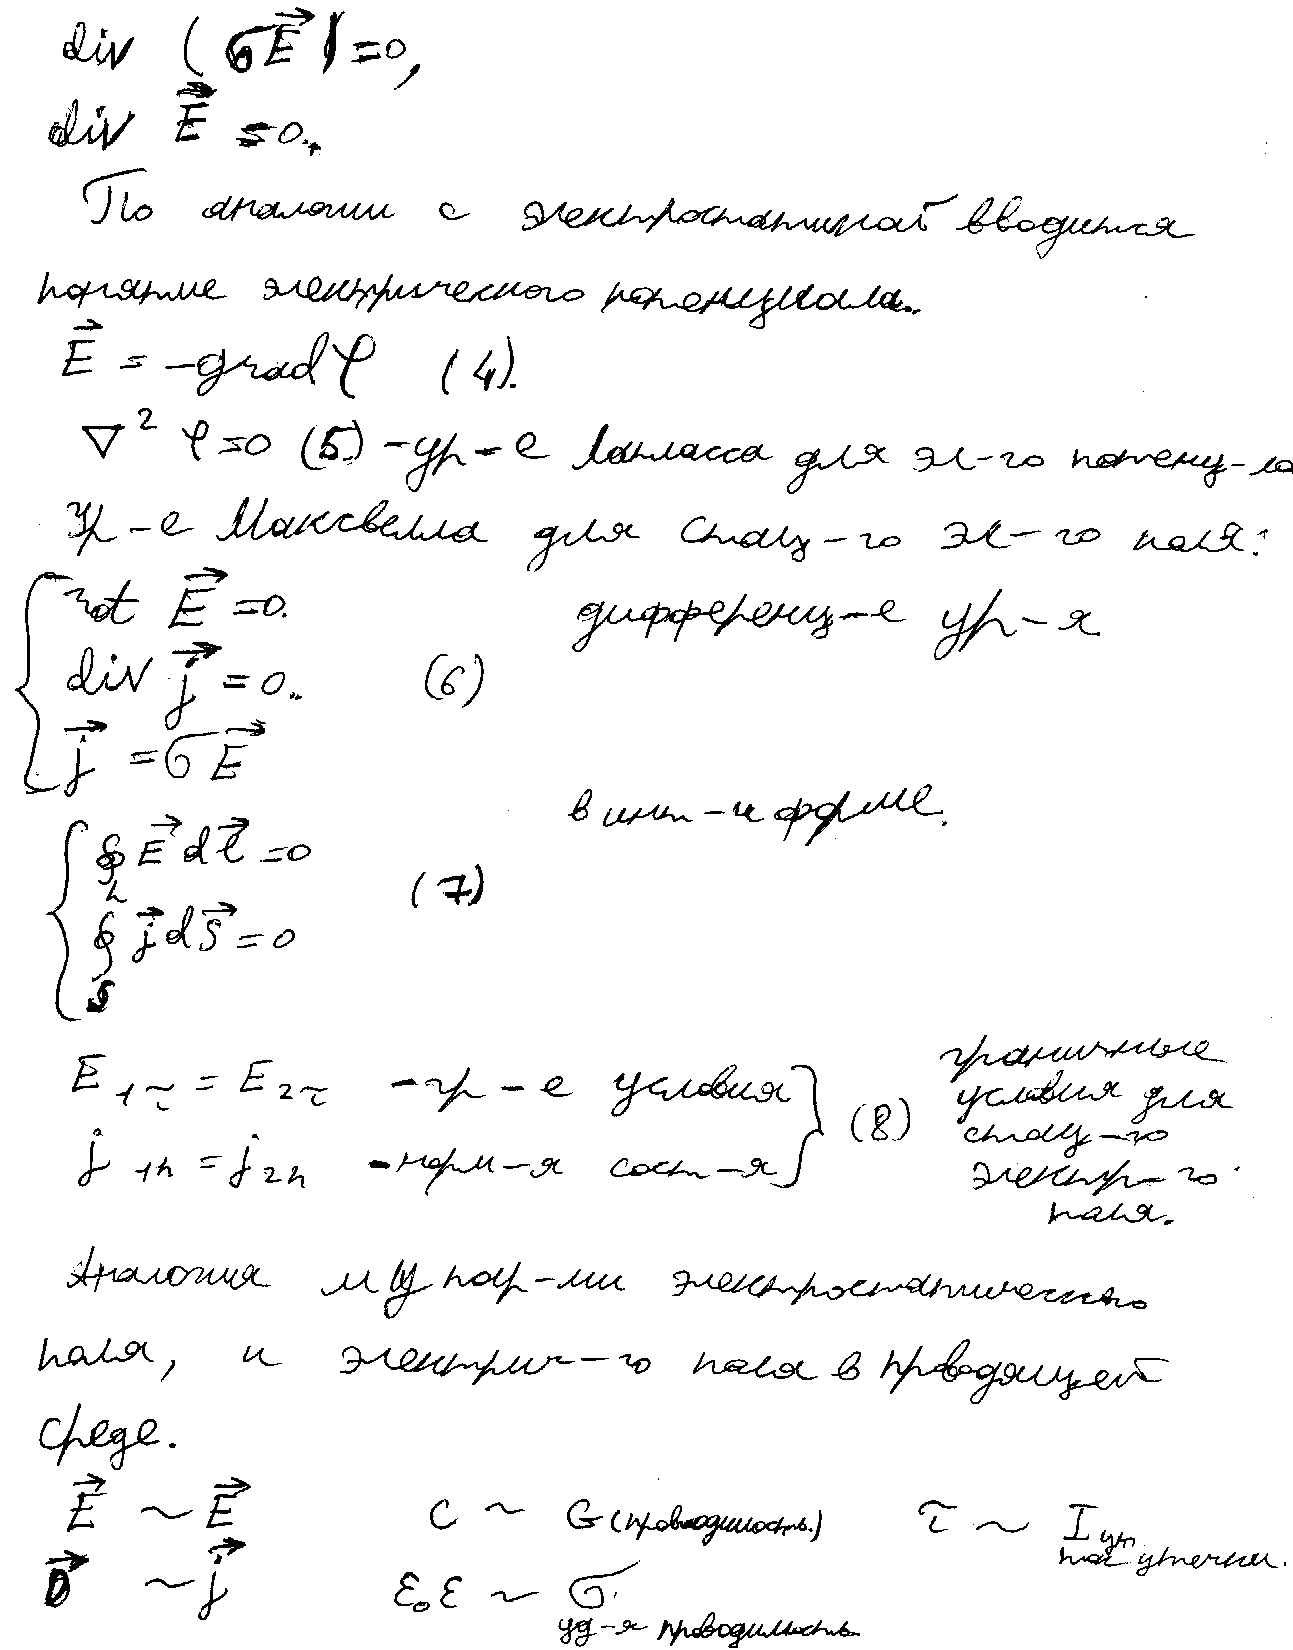 div (σE⃗) = 0,
div E⃗ = 0.
По аналогии с электростатикой вводится
понятие электрического потенциала.
E⃗ = -grad φ (4).
∇² φ = 0 (5) - ур-е Лапласа для эл-го потенц-ла
Ур-е Максвелла для стац-го эл-го поля:
rot E⃗ = 0. дифференц-е ур-я
div j⃗ = 0. (6)
j⃗ = σE⃗
в инт-й форме.
∮_L E⃗ dl⃗ = 0
(7)
∮_S j⃗ dS⃗ = 0
E₁τ = E₂τ - гр-е условия
j₁n = j₂n - норм-я сост-я
(8)
граничные
условия для
стац-го
электр-го
поля.
Аналогия м/у пар-ми электростатического
поля, и электрич-го поля в проводящей
среде.
E⃗ ~ E⃗ C ~ G (проводимость.) τ ~ I ут
ток утечки.
D⃗ ~ j⃗ ε₀ε ~ σ
уд-я проводимость